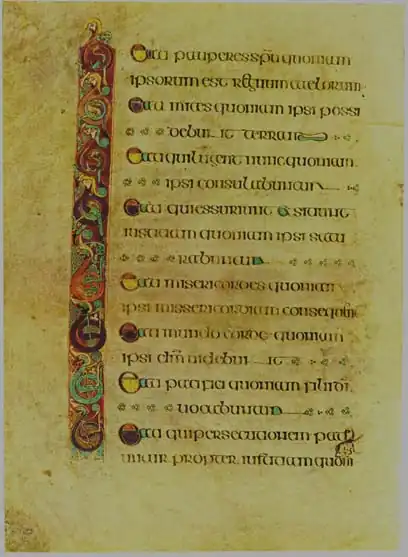 Beati pauperes spu quoniam
ipsorum est regnum caelorum
Beati mites quoniam ipsi possi
debunt terram
Beati qui lugent nunc quoniam
ipsi consulabuntur
Beati qui essuriunt et sitiunt
iustitiam quoniam ipsi satu
rabuntur
Beati misericordes quoniam
ipsi missericordiam
Beati mundo corde quoniam
ipsi dm videbunt
Beati pacifici quoniam filii di
vocabuntur
Beati qui persecutionem pati
untur propter iustitiam